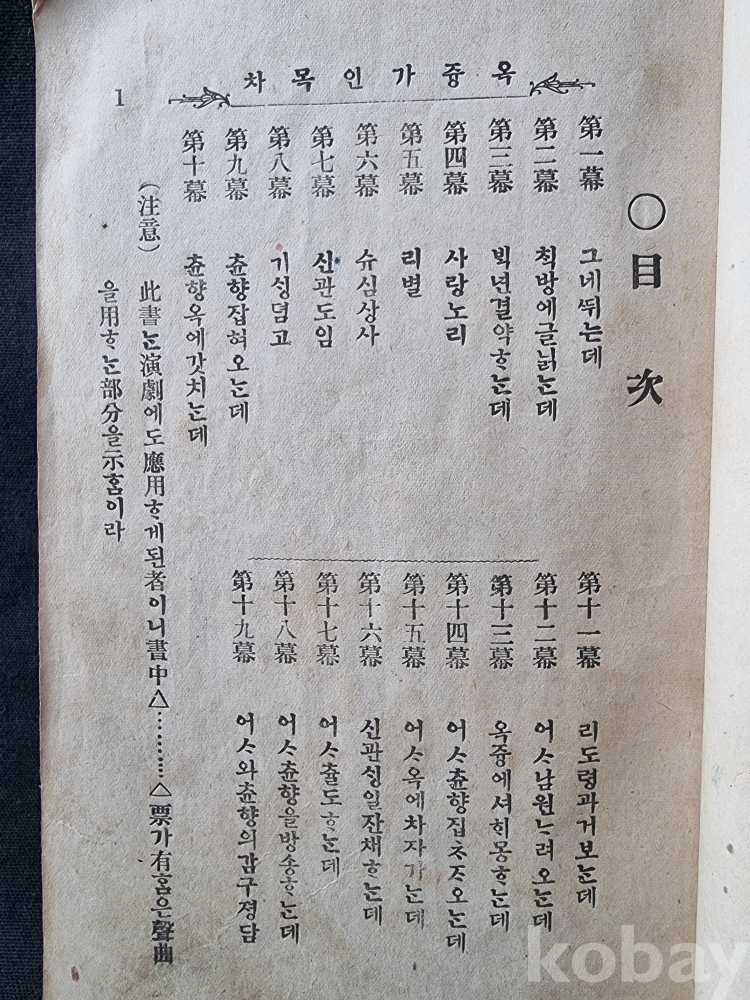 옥즁가인목차
1
○目次
第一幕 그네뛰는데
第二幕 칙방에글닑는데
第三幕 빅년결약ᄒᆞ는데
第四幕 사랑노리
第五幕 리별
第六幕 슈심상사
第七幕 신관도임
第八幕 기싱뎜고
第九幕 츈향잡혀오는데
第十幕 츈향옥에갓치는데
第十一幕 리도령과거보는데
第十二幕 어ᄉᆞ남원ᄂᆞ려오는데
第十三幕 옥즁에셔ᄒᆡ몽ᄒᆞ는데
第十四幕 어ᄉᆞ츈향집ᄎᆞᄌᆞ오는데
第十五幕 어ᄉᆞ옥에차자가는데
第十六幕 신관싱일잔채ᄒᆞ는데
第十七幕 어ᄉᆞ츌도ᄒᆞ는데
第十八幕 어ᄉᆞ츈향을방송ᄒᆞ는데
第十九幕 어ᄉᆞ와츈향의감구졍담
(注意) 此書는演劇에도應用ᄒᆞ게된者이니書中△………△票가有ᄒᆞᆷ은聲曲
을用ᄒᆞ는部分을示ᄒᆞᆷ이라
kobay